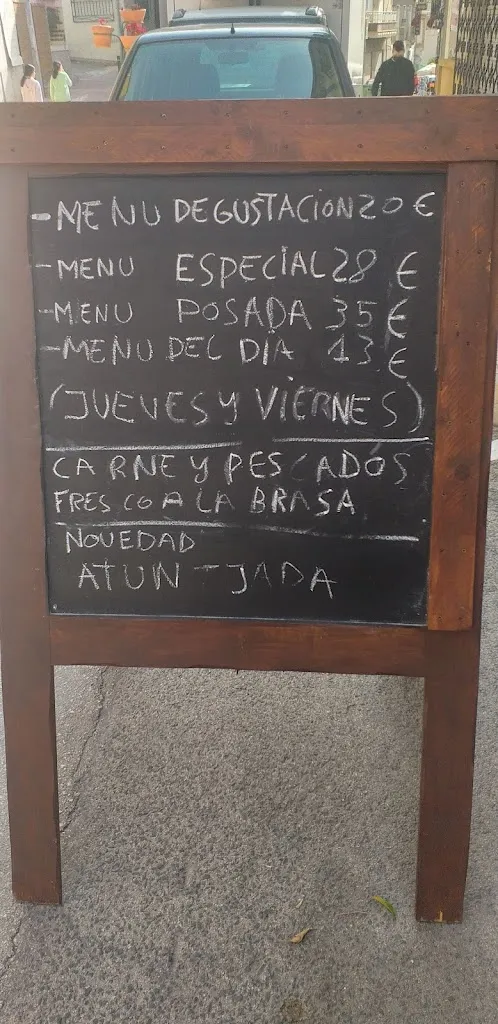 - MENU DEGUSTACION 20 €
- MENU ESPECIAL 28 €
- MENU POSADA 35 €
- MENU DEL DIA 13 €
(JUEVES Y VIERNES)
CARNE Y PESCADOS
FRESCO A LA BRASA
NOVEDAD
ATUN - IJADA